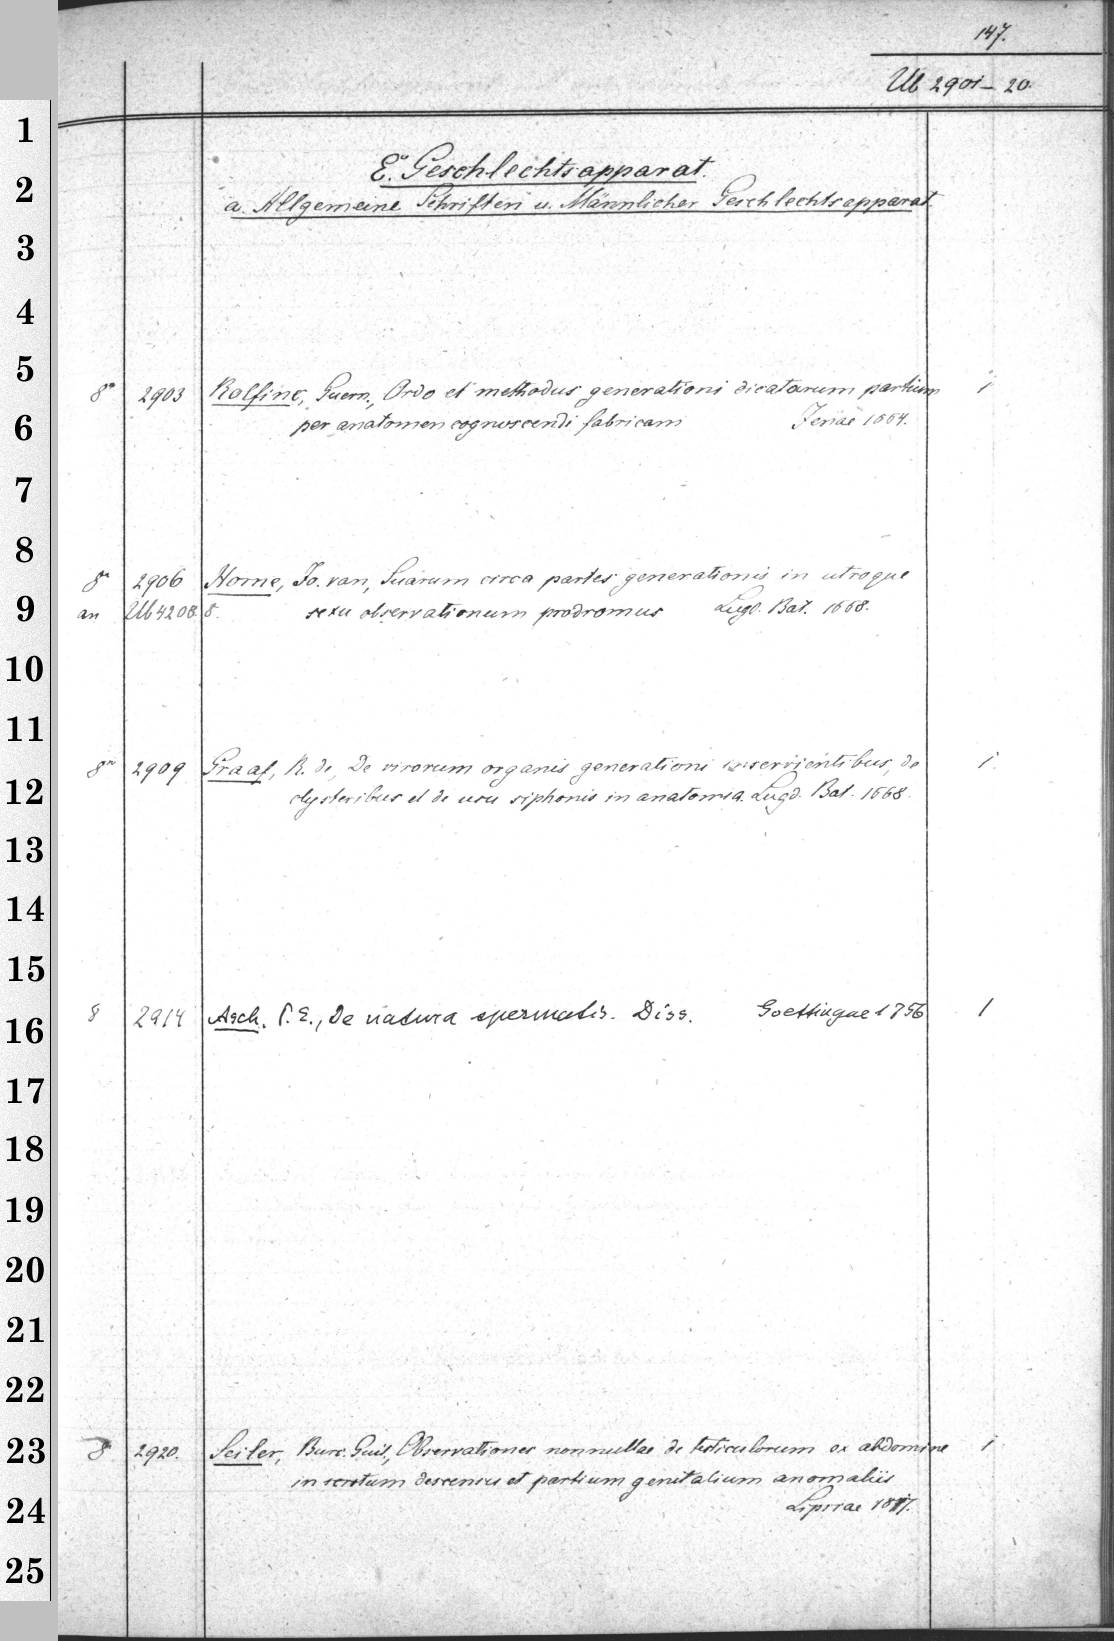 147.
Ub 2901-20.
E. Geschlechtsapparat.
a. Allgemeine Schriften u. Männlicher Geschlechtsapparat.
8° 2903 Rolfinc, Guern., Ordo et methodus generationi dicatarum partium 1
per anatomen cognoscendi fabricam Jenae 1664.
8° 2906 Horne, Jo. van, Suarum circa partes generationis in utroque
an Ub 4208. 8. sexu observationum prodromus Lugd. Bat. 1668.
8° 2909 Graaf, R. de, De virorum organis generationi inservientibus, de 1.
clysteribus et de usu siphonis in anatomia. Lugd. Bat. 1668.
8 2914 Asch, P. E., De natura spermatis. Diss. Goettingae 1756 1
8° 2920. Seiler, Burc. Guil., Observationes nonnullae de testiculorum ex abdomine 1
in scrotum descensu et partium genitalium anomaliis
Lipsiae 1817.
1
2
3
4
5
6
7
8
9
10
11
12
13
14
15
16
17
18
19
20
21
22
23
24
25